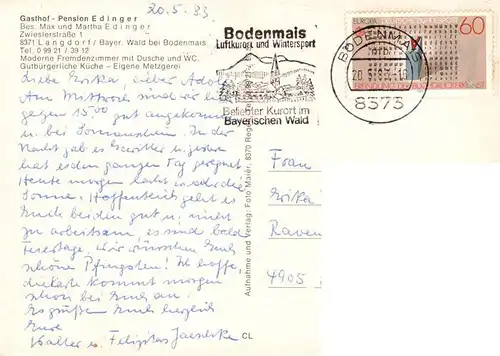 20.5.83
Gasthof - Pension Edinger
Bes: Max und Martha Edinger
Zwieslerstraße 1
8371 Langdorf/Bayer. Wald bei Bodenmais
Tel. 0 99 21 / 39 12
Moderne Fremdenzimmer mit Dusche und WC.
Gutbürgerliche Küche - Eigene Metzgerei
Liebe Erika, lieber Adolf
Am Mittwoch sind wir
gegen 15.00 gut angekommen
u. bei Sonnenschein. In der
Nacht gab es Gewitter u. gestern
hat es den ganzen Tag geregnet.
Heute morgen lacht wieder die
Sonne. Hoffentlich geht es
Euch beiden gut u. nicht
zu arbeitsam, es sind bald
Feiertage. Wir wünschen Euch
schöne Pfingsten! Ich hoffe
die Karte kommt morgen
schon bei Euch an!
Es grüßen Euch herzlich
Eure
Walter u. Felizitas
CL
Bodenmais
Luftkurort und Wintersport
Beliebter Kurort im
Bayerischen Wald
BODENMAIS
20.5.83
8373
EUROPA
60
Aufnahme und Verlag: Foto Maier, 8370 Regen
Frau
Erika
4905